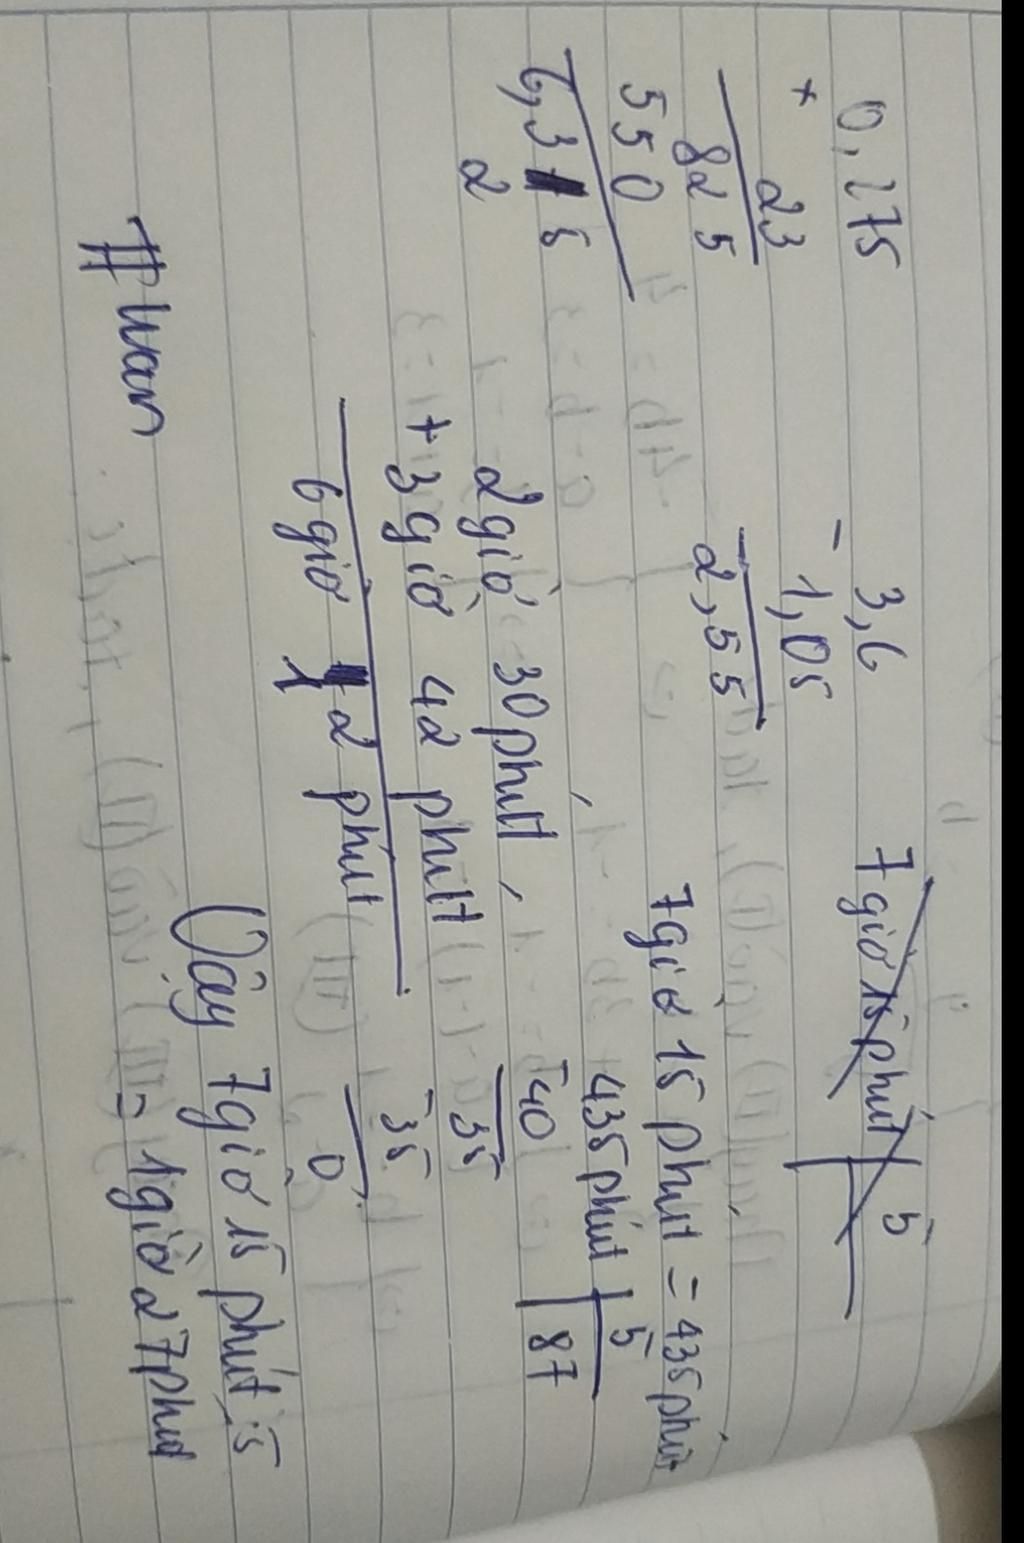 0,275
×
23
825
550
6,325
3,6
-
1,05
2,55
7 giờ 15 phút 5
7 giờ 15 phút = 435 phút
435 phút 5
- 40 87
35
- 35
0
Vậy 7 giờ 15 phút : 5
= 1 giờ 27 phút
2 giờ 30 phút
+ 3 giờ 42 phút
6 giờ 12 phút